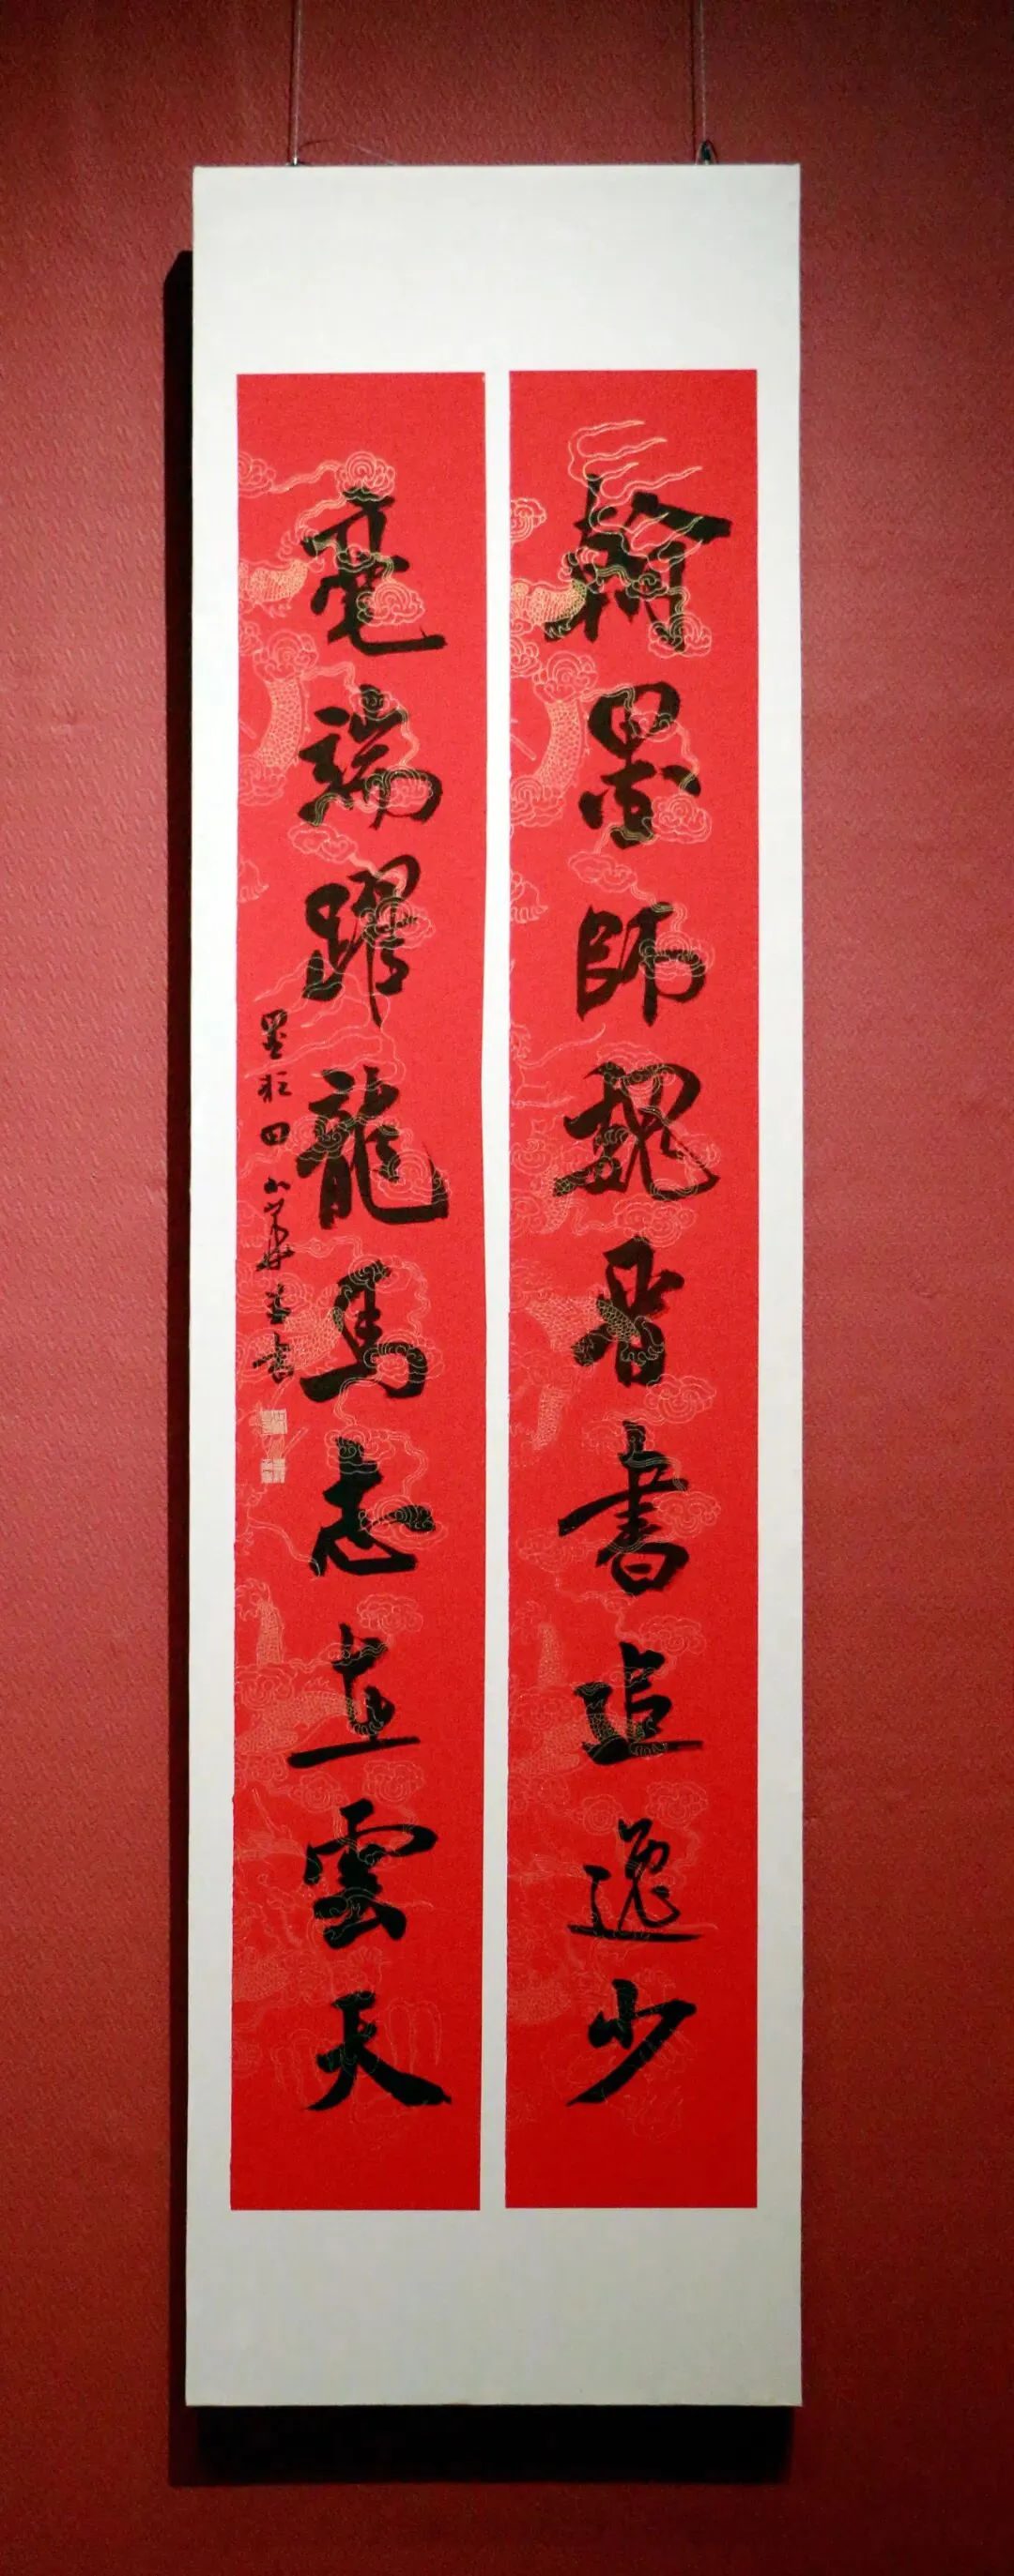 翰墨師魏晉書追逸少
毫端躍龍馬志直雲天
墨狂田小華並書